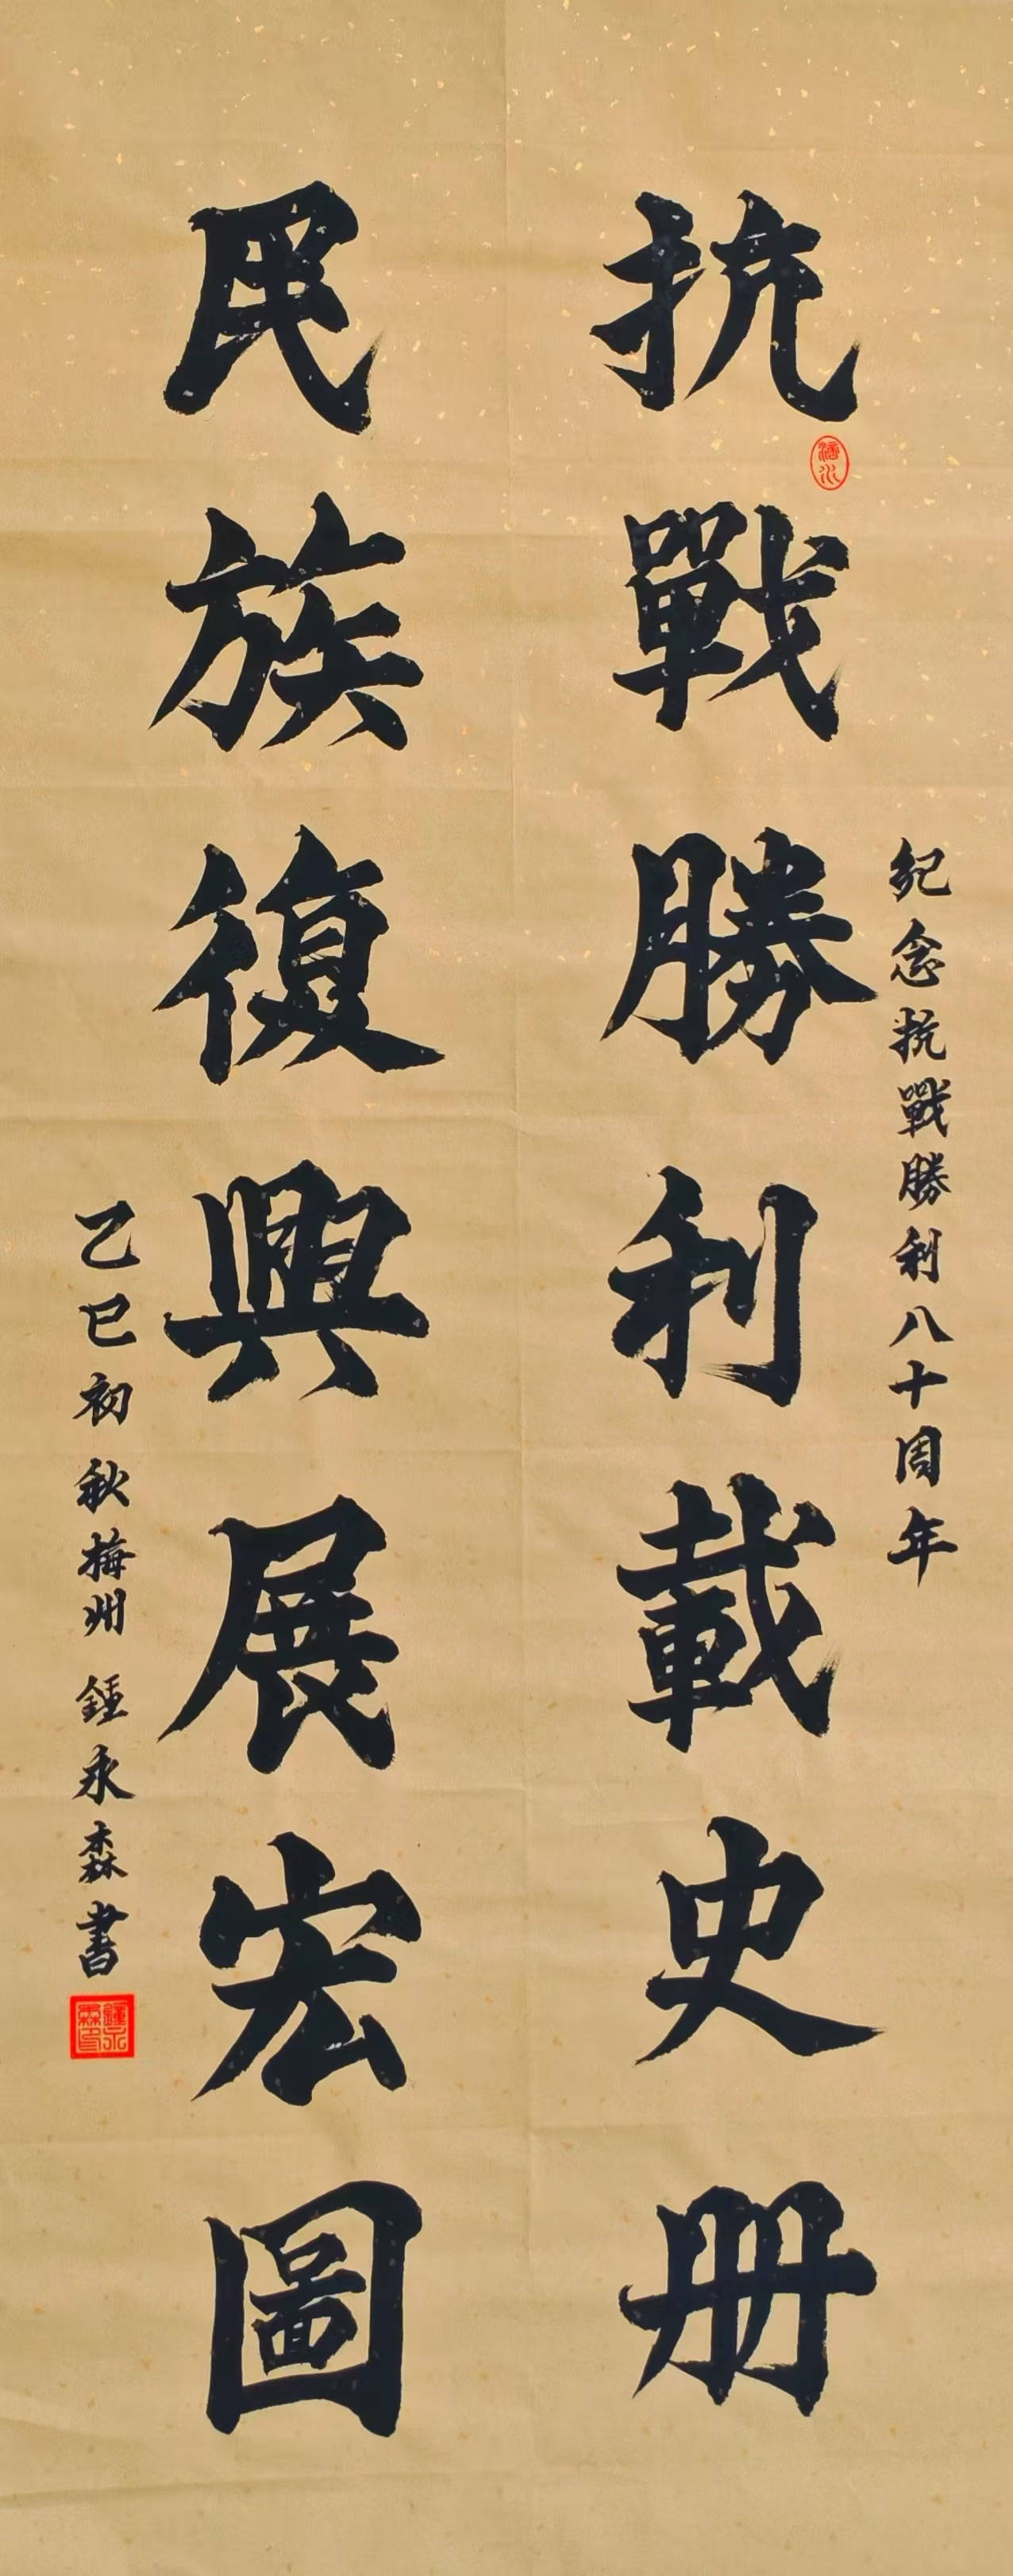 紀念抗戰勝利八十周年
抗戰勝利載史冊
民族復興展宏圖
乙巳初秋梅州鍾永森書